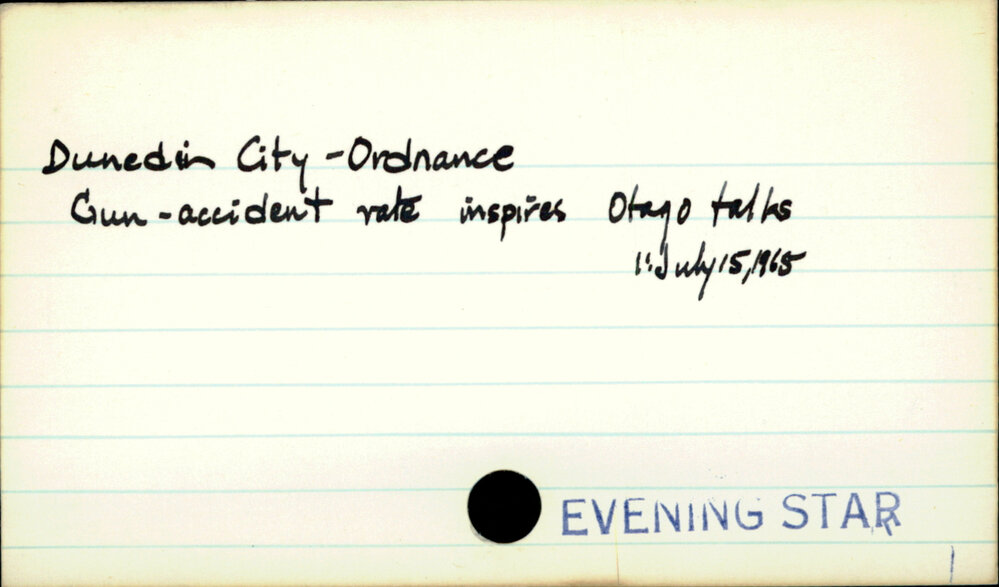 Dunedin City - Ordnance
Gun-accident rate inspires Otago talks
1: July 15, 1965
EVENING STAR